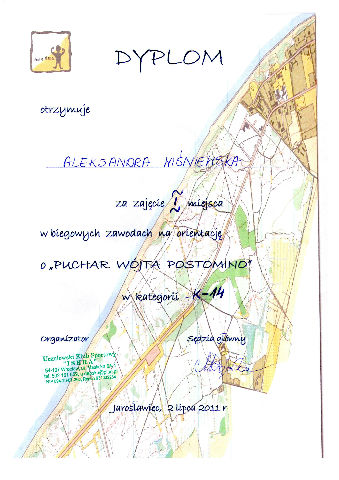 DYPLOM
otrzymuje
ALEKSANDRA WIŚNIEWSKA
za zajęcie I miejsca
w biegowych zawodach na orientację
o „PUCHAR WÓJTA POSTOMINO"
w kategorii - K-14
Organizator
Sędzia główny
Jarosławiec, 2 lipca 2011 r